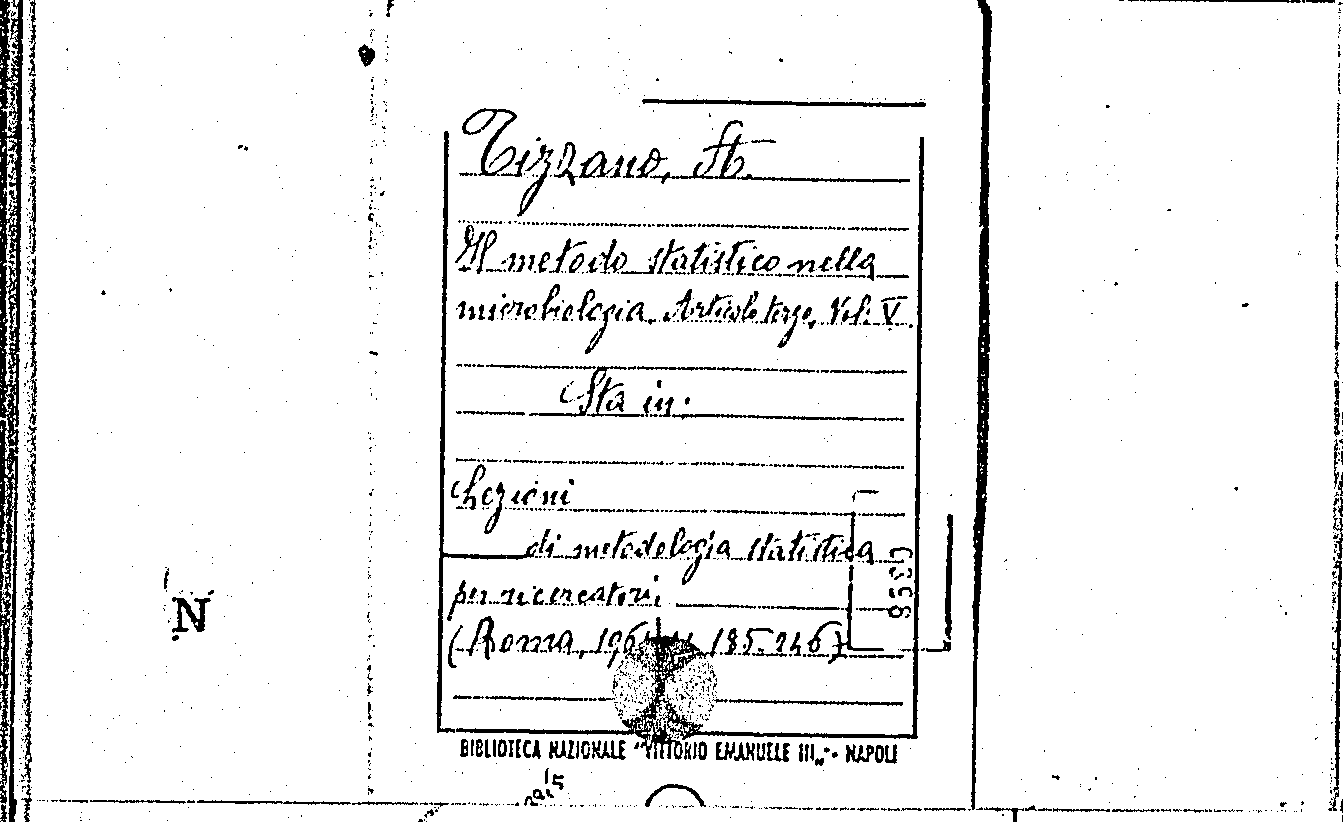 Tizzano, St.
Il metodo statistico nella
microbiologia. Articolo terzo, Vol. V.
Sta in:
Lezioni
di metodologia statistica
per ricercatori,
(Roma, 185-246)
BIBLIOTECA NAZIONALE "VITTORIO EMANUELE III„ - NAPOLI
N